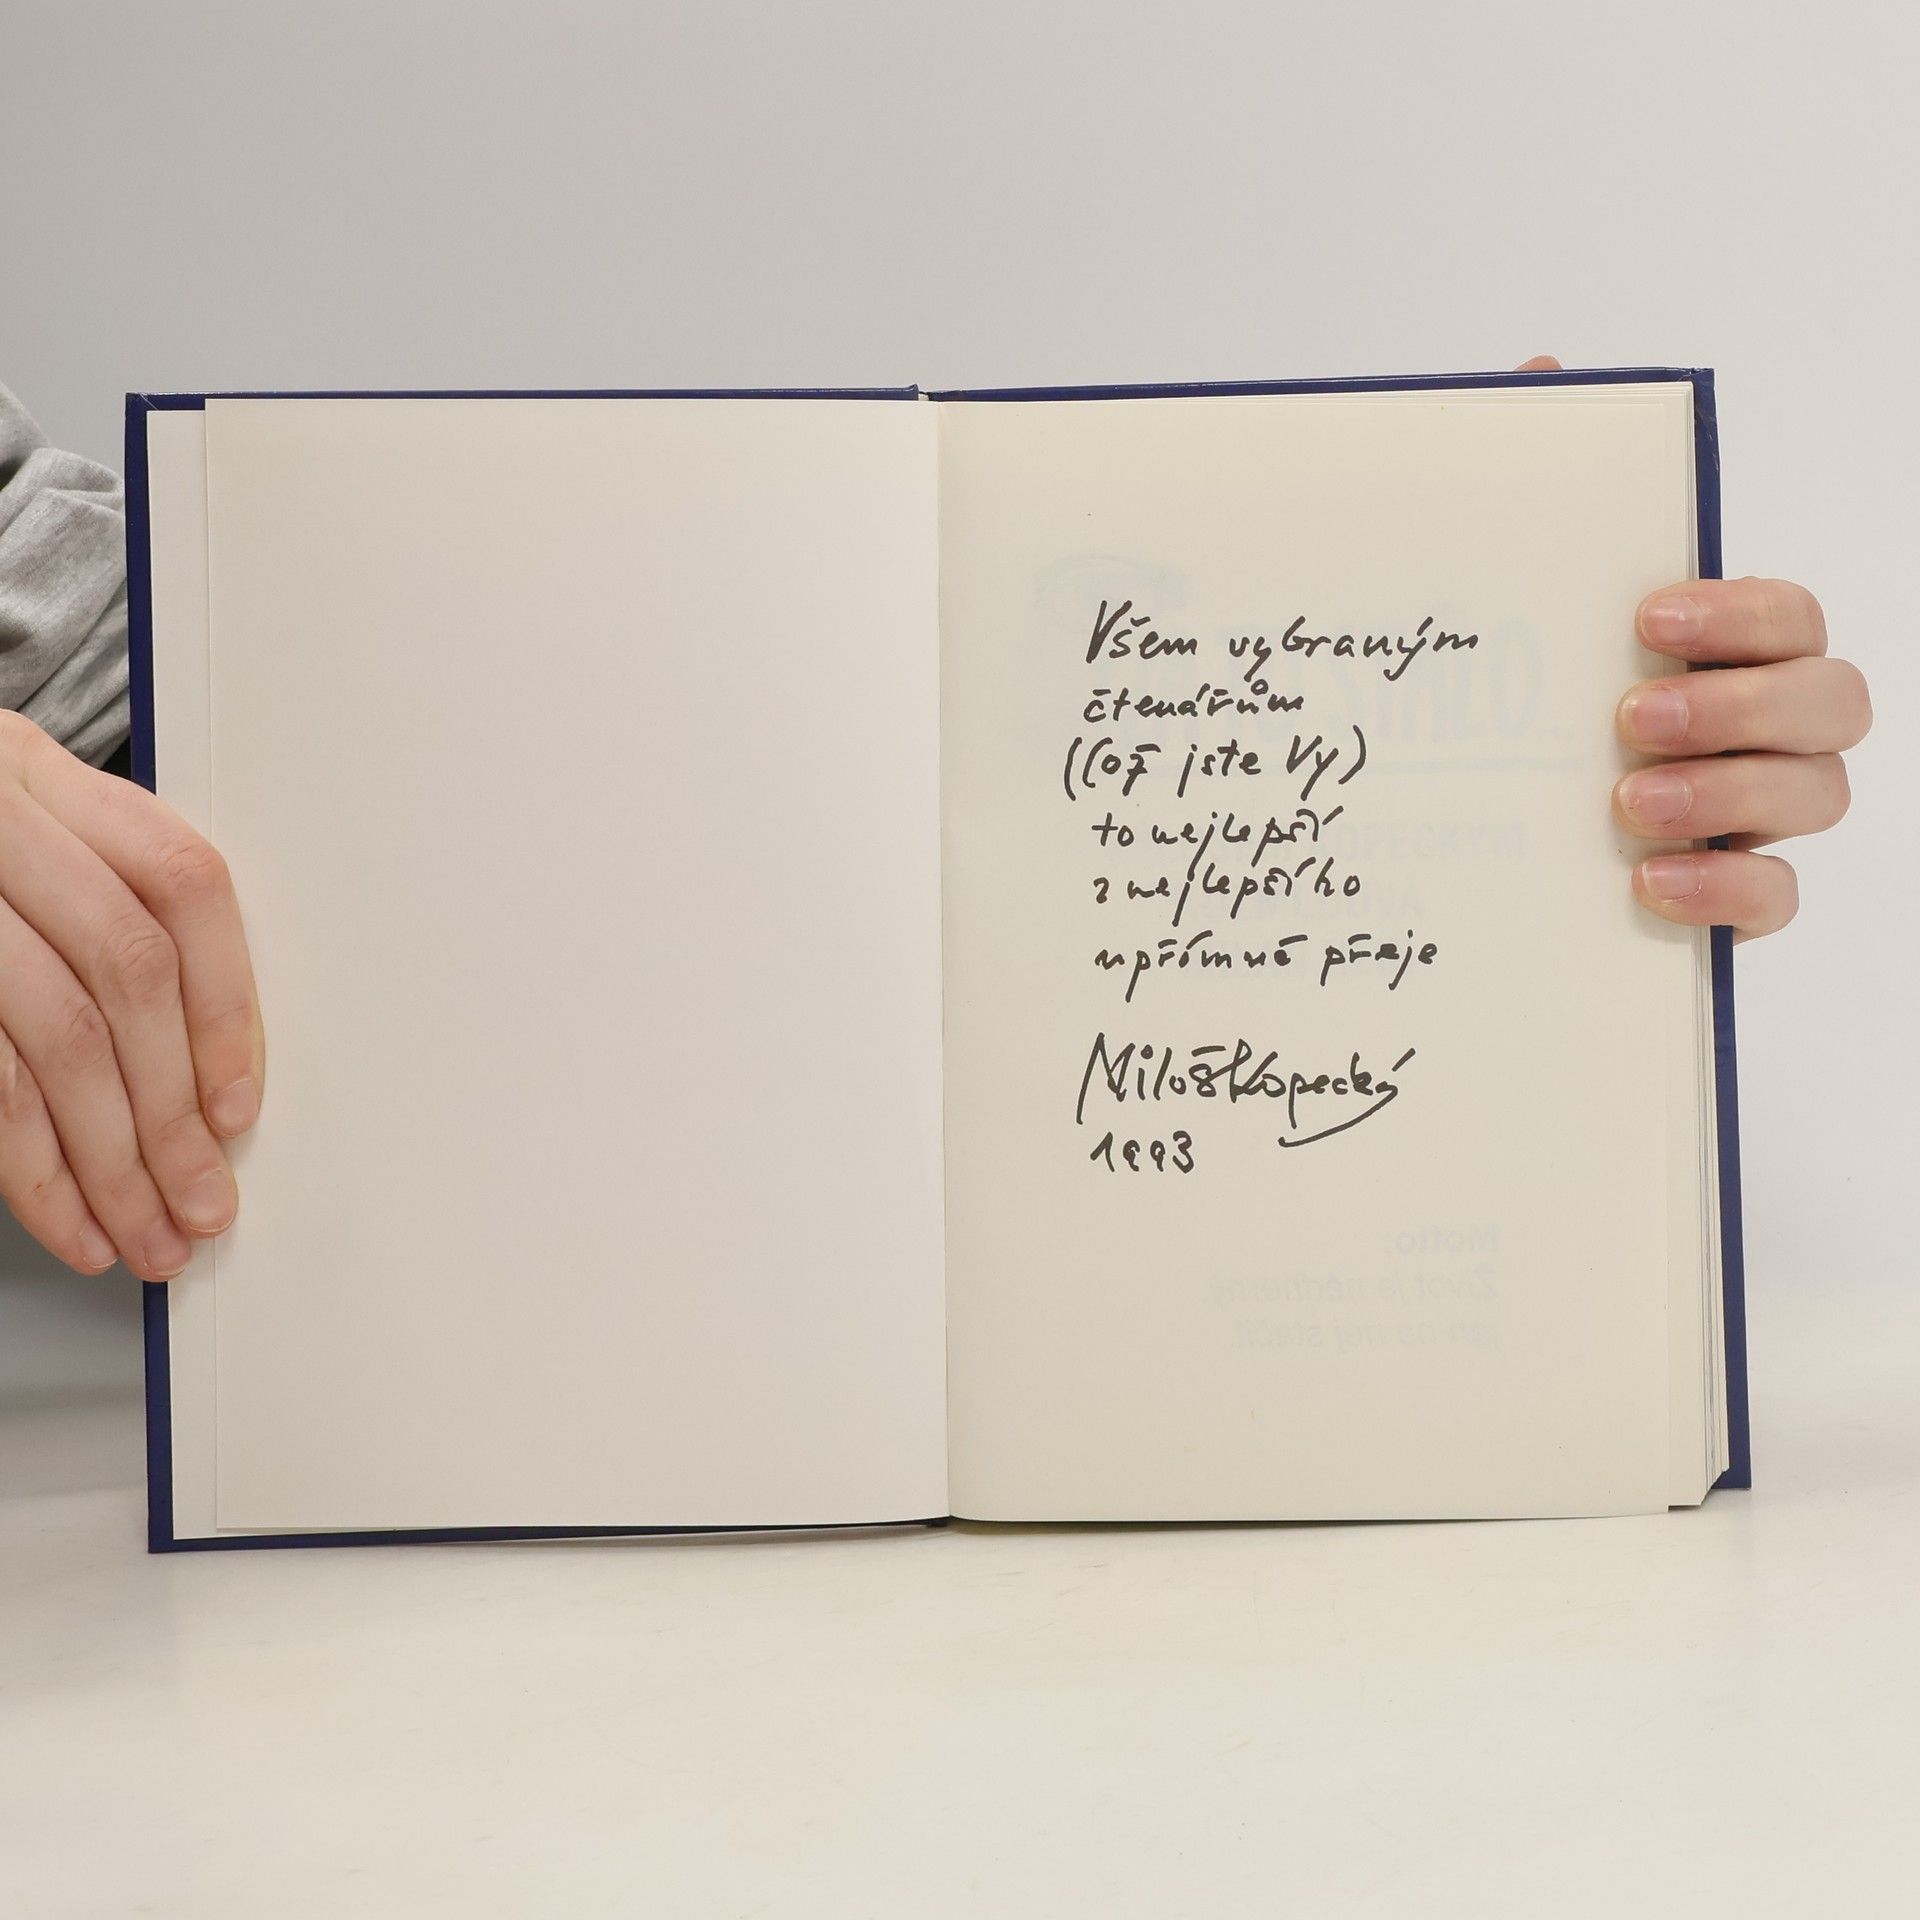 Všem vybraným
čtenářům
(což jste Vy)
to nejlepší
z nejlepšího
upřímně přeje
Miloš Kopecký
1993
Motto:
Život je nádherný,
jen na něj stačit.